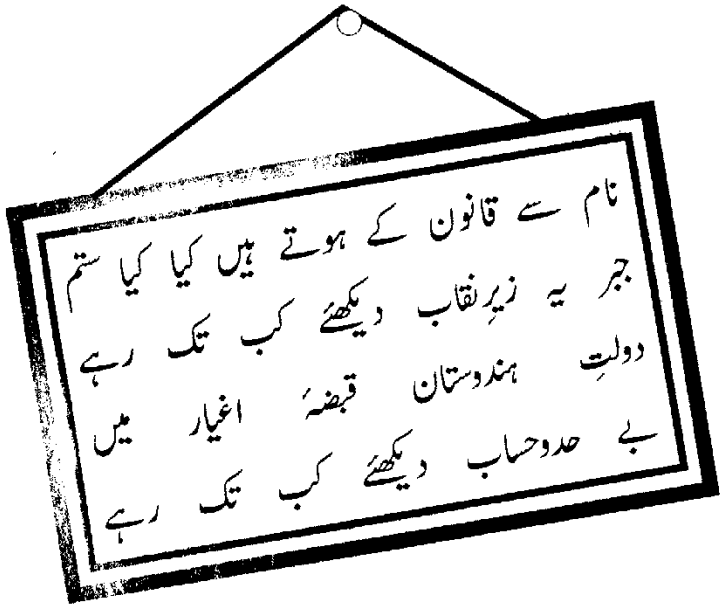 نام سے قانون کے ہوتے ہیں کیا کیا ستم
جبر یہ زیرِ نقاب دیکھئے کب تک رہے
دولتِ ہندوستان قبضۂ اغیار میں
بے حدوحساب دیکھئے کب تک رہے